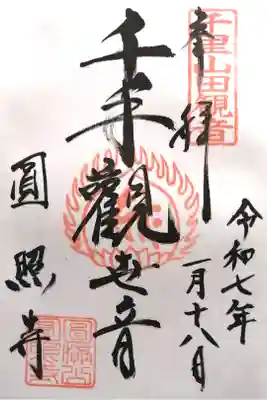 千里山田観音
奉拝
令和七年
一月十八日
千手觀世音
圓照寺